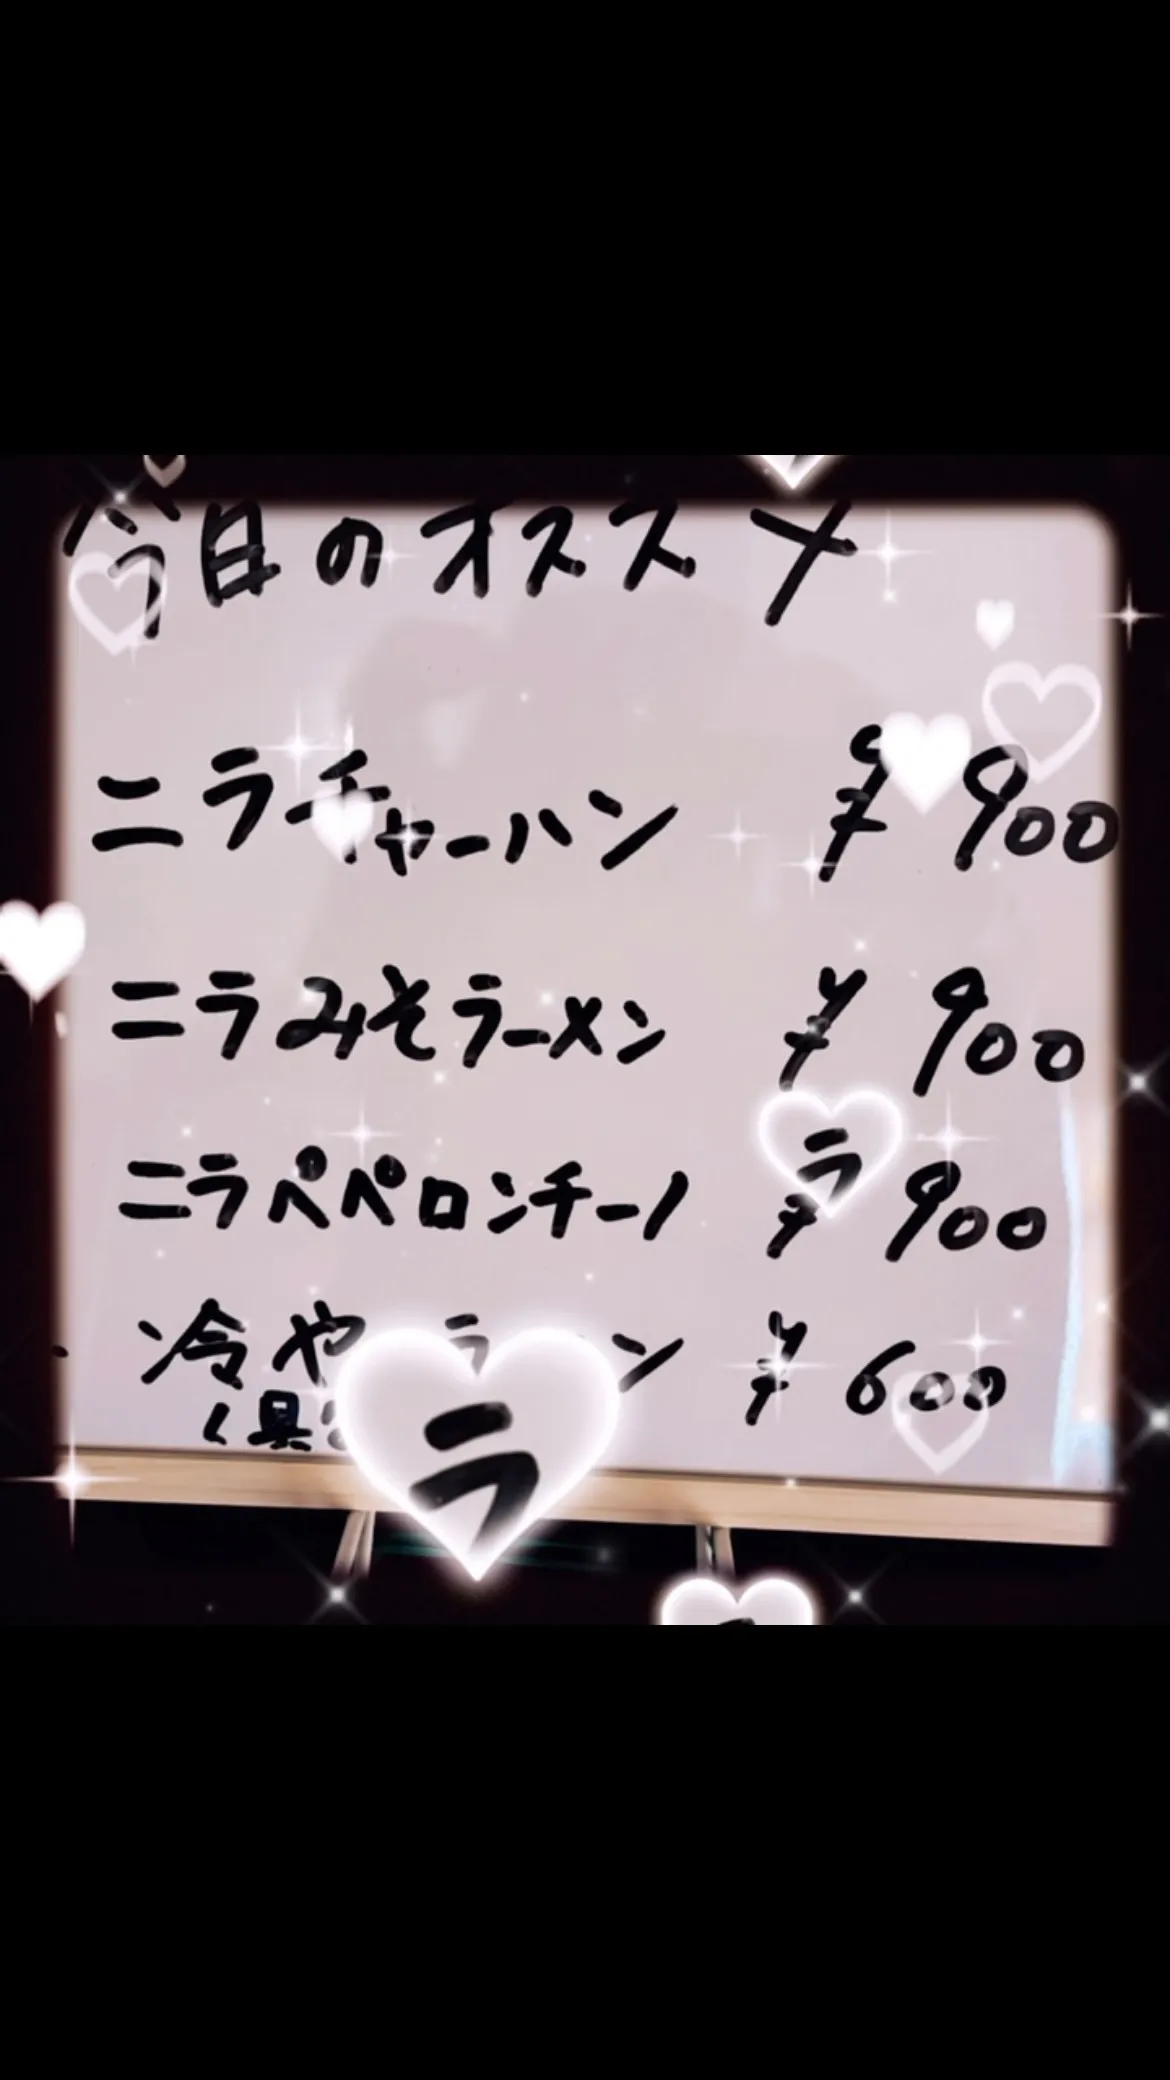 今日のオススメ
ニラチャーハン ¥900
ニラみそラーメン ¥900
ニラペペロンチーノ ¥900
冷や ラ ン ¥600
(具
ラ
ラ